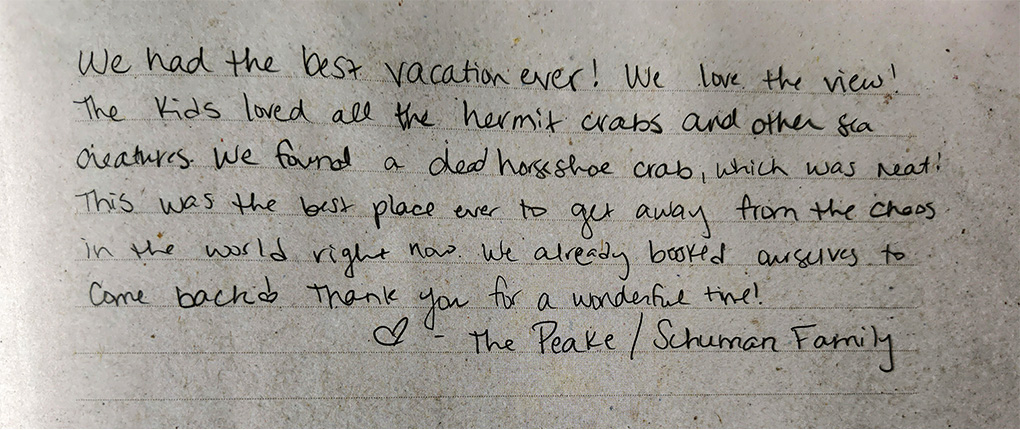 We had the best vacation ever! We love the view!
The kids loved all the hermit crabs and other sea
creatures. We found a dead horseshoe crab, which was neat!
This was the best place ever to get away from the chaos
in the world right now. We already booked ourselves to
come back! Thank you for a wonderful time!
♡ - The Peake / Schuman Family